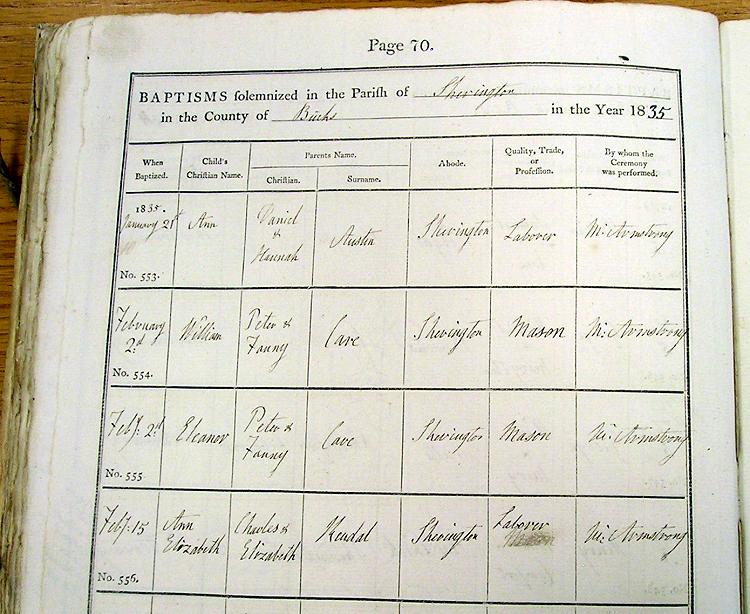 Page 70.
BAPTISMS solemnized in the Parish of Sherington
in the County of Bucks in the Year 1835
When Baptized.
Child's Christian Name.
Parents Name.
Christian.
Surname.
Abode.
Quality, Trade, or Profession.
By whom the Ceremony was performed.
1835.
January 21st
No. 553.
Ann
Daniel
&
Hannah
Austin
Sherington
Laborer
Mr. Armstrong
February
2d
No. 554.
William
Peter &
Fanny
Cave
Sherington
Mason
Mr. Armstrong
Feby. 2d
No. 555
Eleanor
Peter &
Fanny
Cave
Sherington
Mason
Mr. Armstrong
Feby. 15
No. 556.
Ann
Elizabeth
Charles &
Elizabeth
Kendal
Sherington
Laborer
Mr. Armstrong